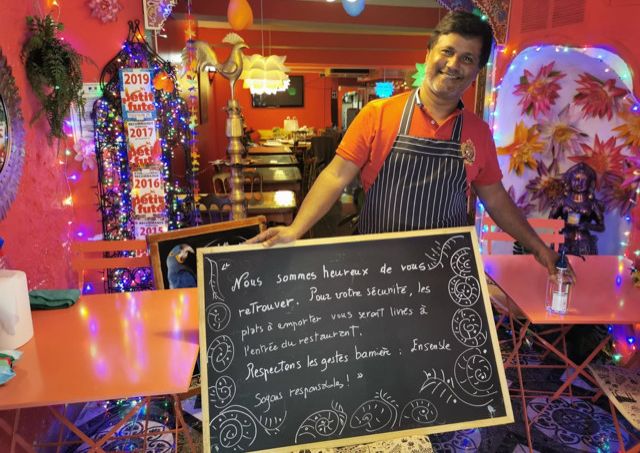 2019
Petit
futé
2017
2016
petit
futé
2015
" Nous sommes heureux de vous
retrouver. Pour votre sécurité, les
plats à emporter vous serait livrés à
l'entrée du restaurant.
Respectons les gestes barrière : Ensemble
Soyons responsable ! "